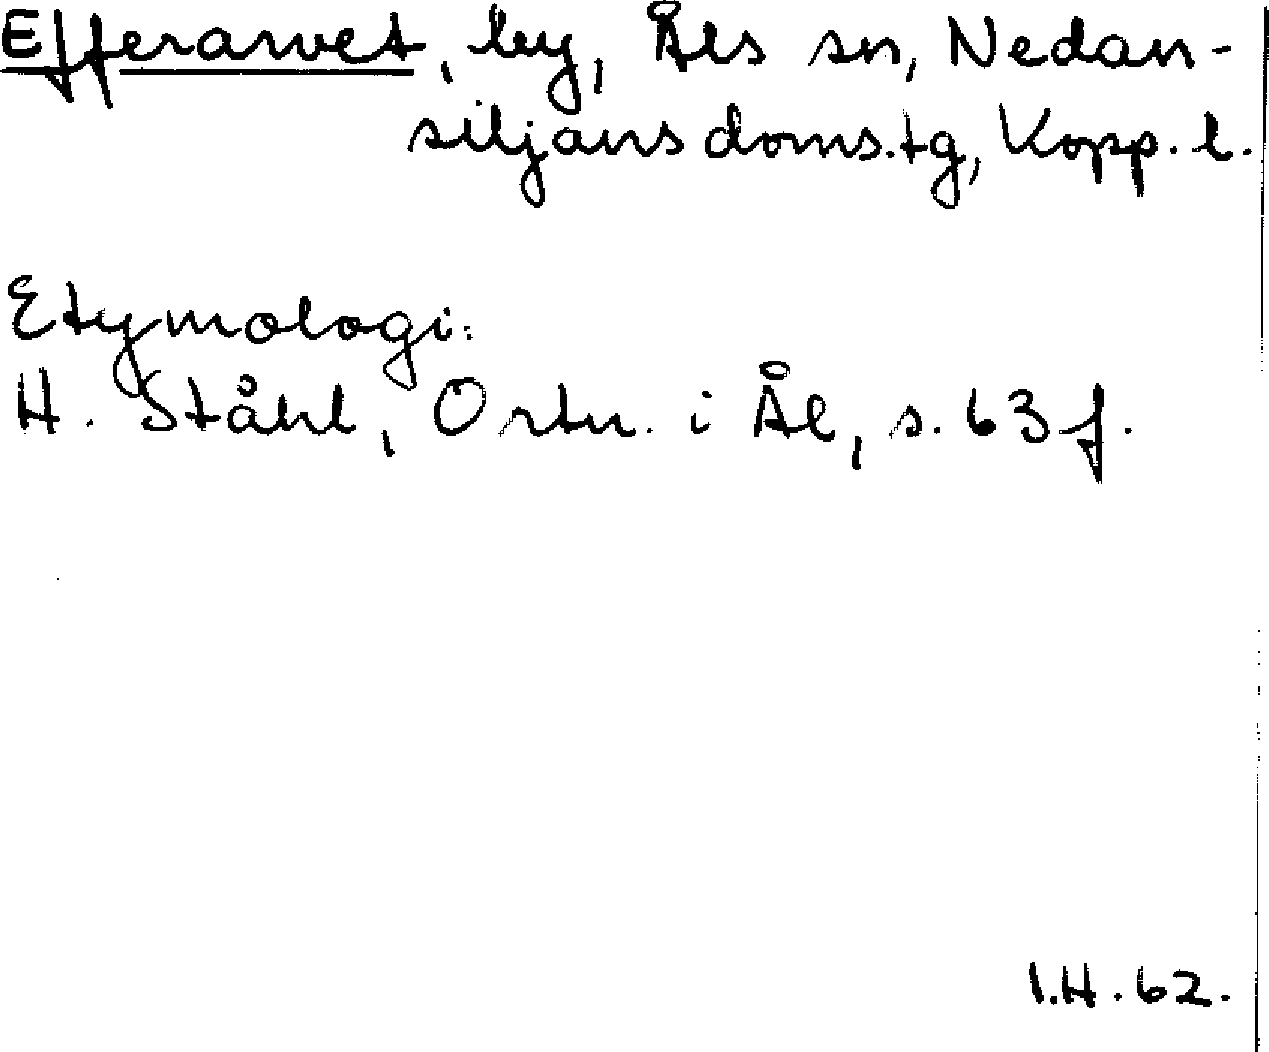 Efferarvet, by, Åls sn, Nedan-
siljans doms.tg, Kopp. l.
Etymologi:
H. Ståhl, Ortn. i Ål, s. 63 f.
I.H. 62.